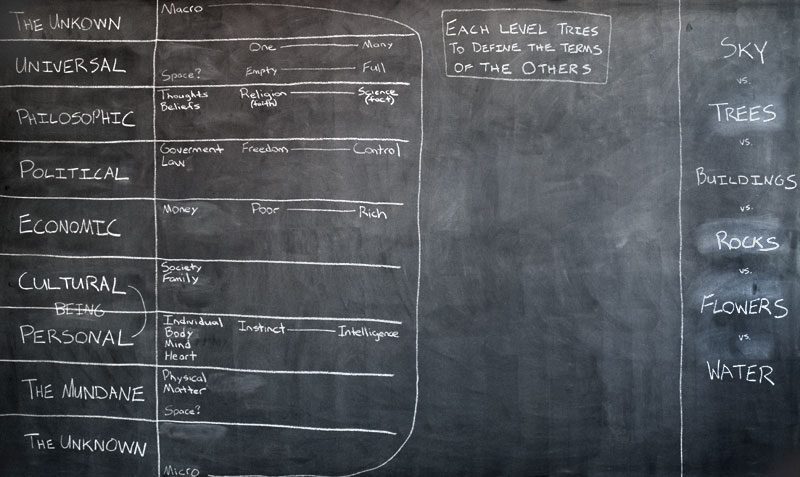 THE UNKOWN
Macro
UNIVERSAL
One Many
Space? Empty Full
PHILOSOPHIC
Thoughts Religion Science
Beliefs (faith) (fact)
POLITICAL
Goverment Freedom Control
Law
ECONOMIC
Money Poor Rich
CULTURAL
Society
Family
BEING
PERSONAL
Individual Instinct Intelligence
Body
Mind
Heart
THE MUNDANE
Physical
Matter
Space?
THE UNKNOWN
Micro
EACH LEVEL TRIES
TO DEFINE THE TERMS
OF THE OTHERS
SKY
vs.
TREES
vs.
BUILDINGS
vs.
ROCKS
vs.
FLOWERS
vs.
WATER